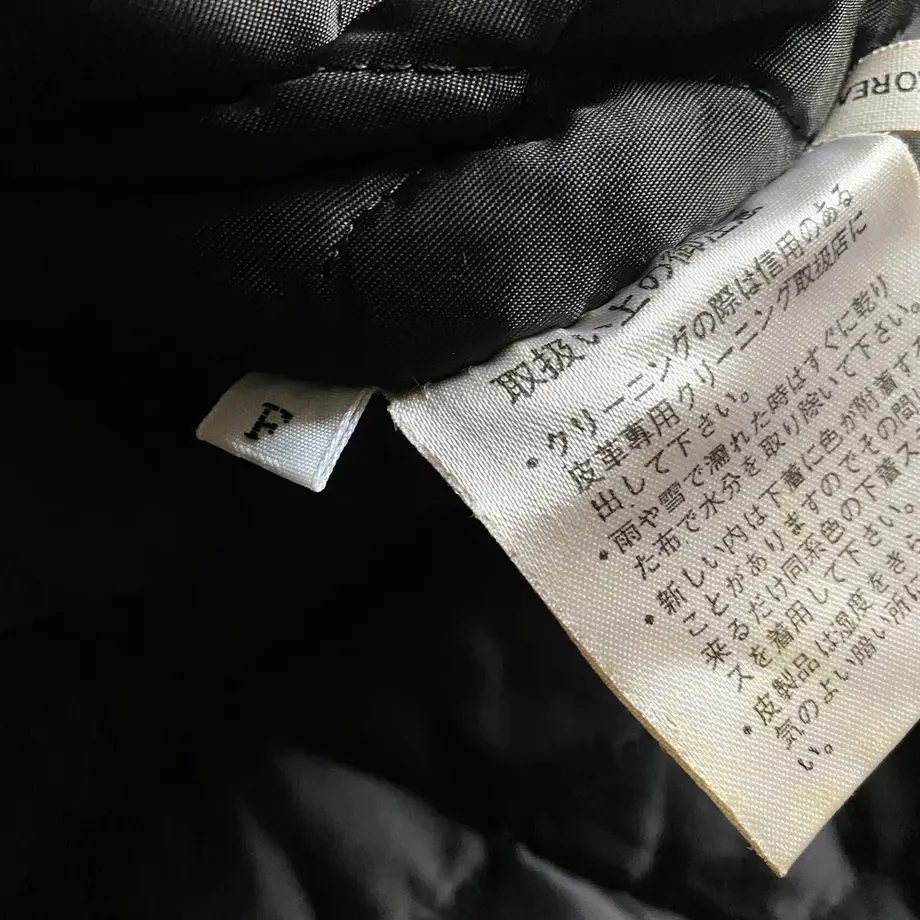 KOREA
取扱い上の御注意
・クリーニングの際は信用のある
皮革専用クリーニング取扱店に
出して下さい。
・雨や雪で濡れた時はすぐに乾り
た布で水分を取り除いて下さい。
・新しい内は下着に色が附着す
ことがありますのでその間
来るだけ同系色の下着ス
スを着用して下さい。
・皮製品は湿度をきら
気のよい暗い所に
い。